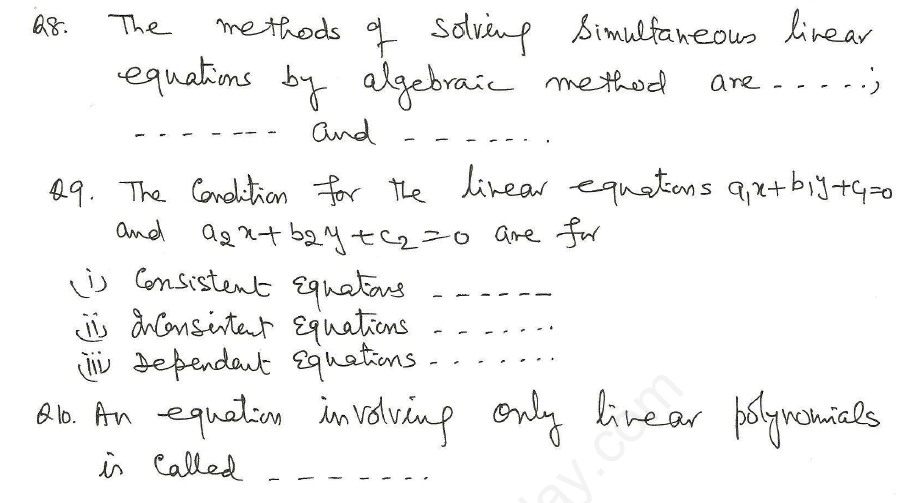 Q8. The methods of solving simultaneous linear
equations by algebraic method are -----;
------- and -------.
Q9. The Condition for the linear equations a₁x+b₁y+c₁=0
and a₂x+b₂y+c₂=0 are for
(i) Consistent Equations ------
(ii) InConsistent Equations -------
(iii) Dependent Equations --------
Q10. An equation involving only linear polynomials
is Called -------.
ay.com